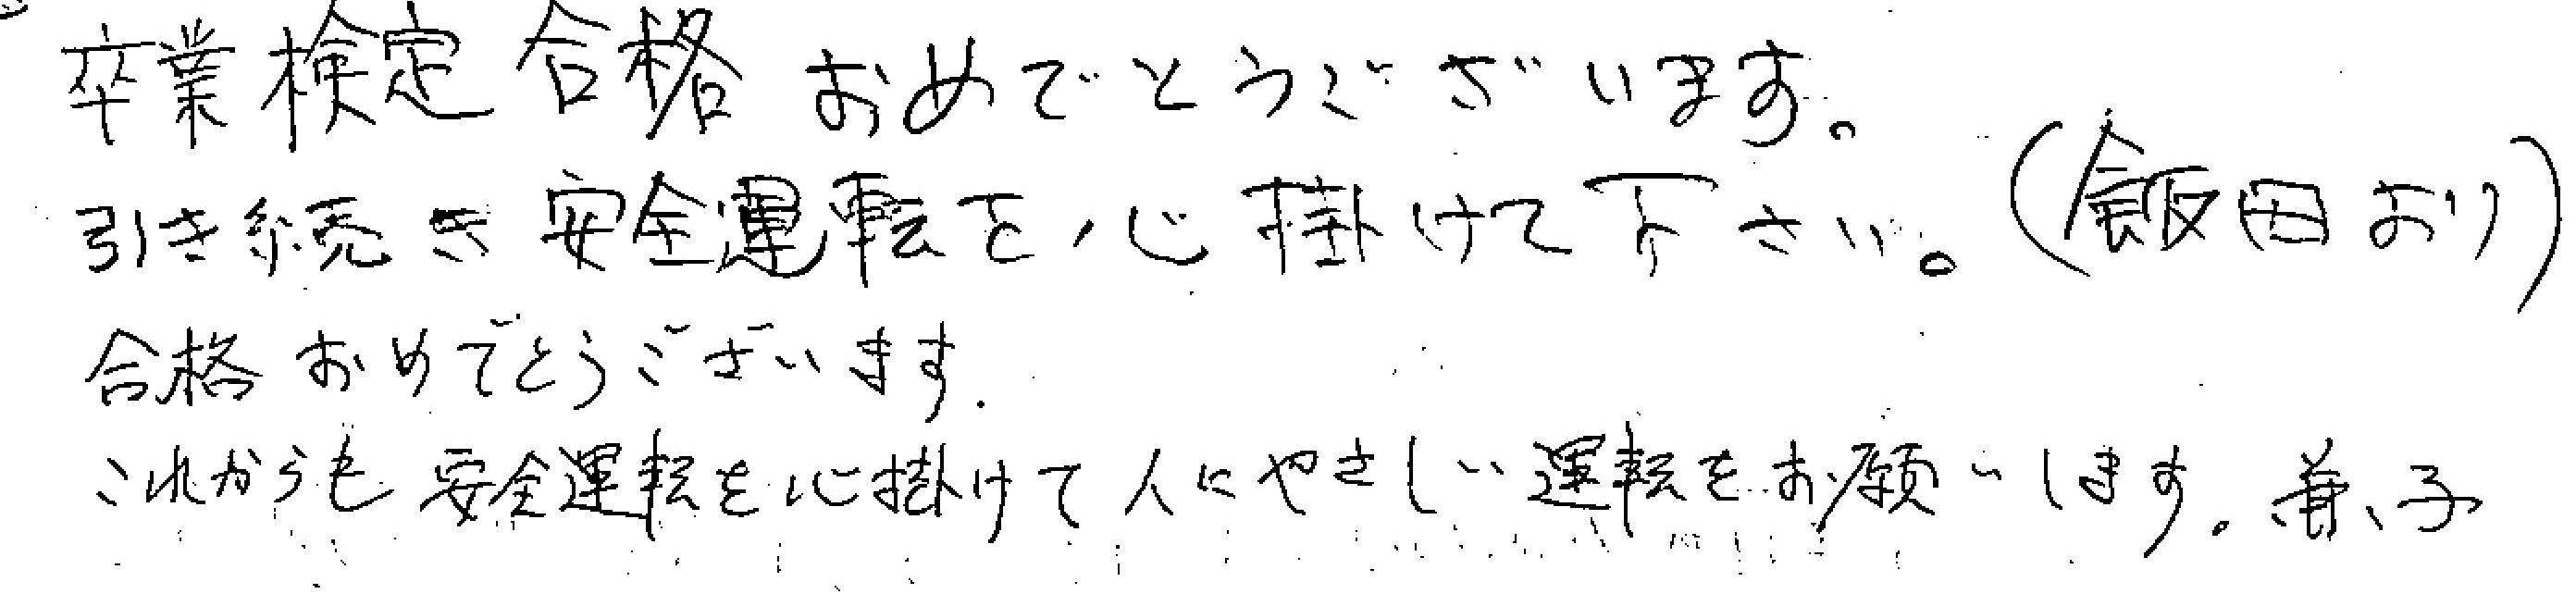 卒業検定合格おめでとうございます。
引き続き安全運転を心掛けて下さい。(飯田より)
合格おめでとうございます.
これからも安全運転を心掛けて人にやさしい運転をお願いします。兼子